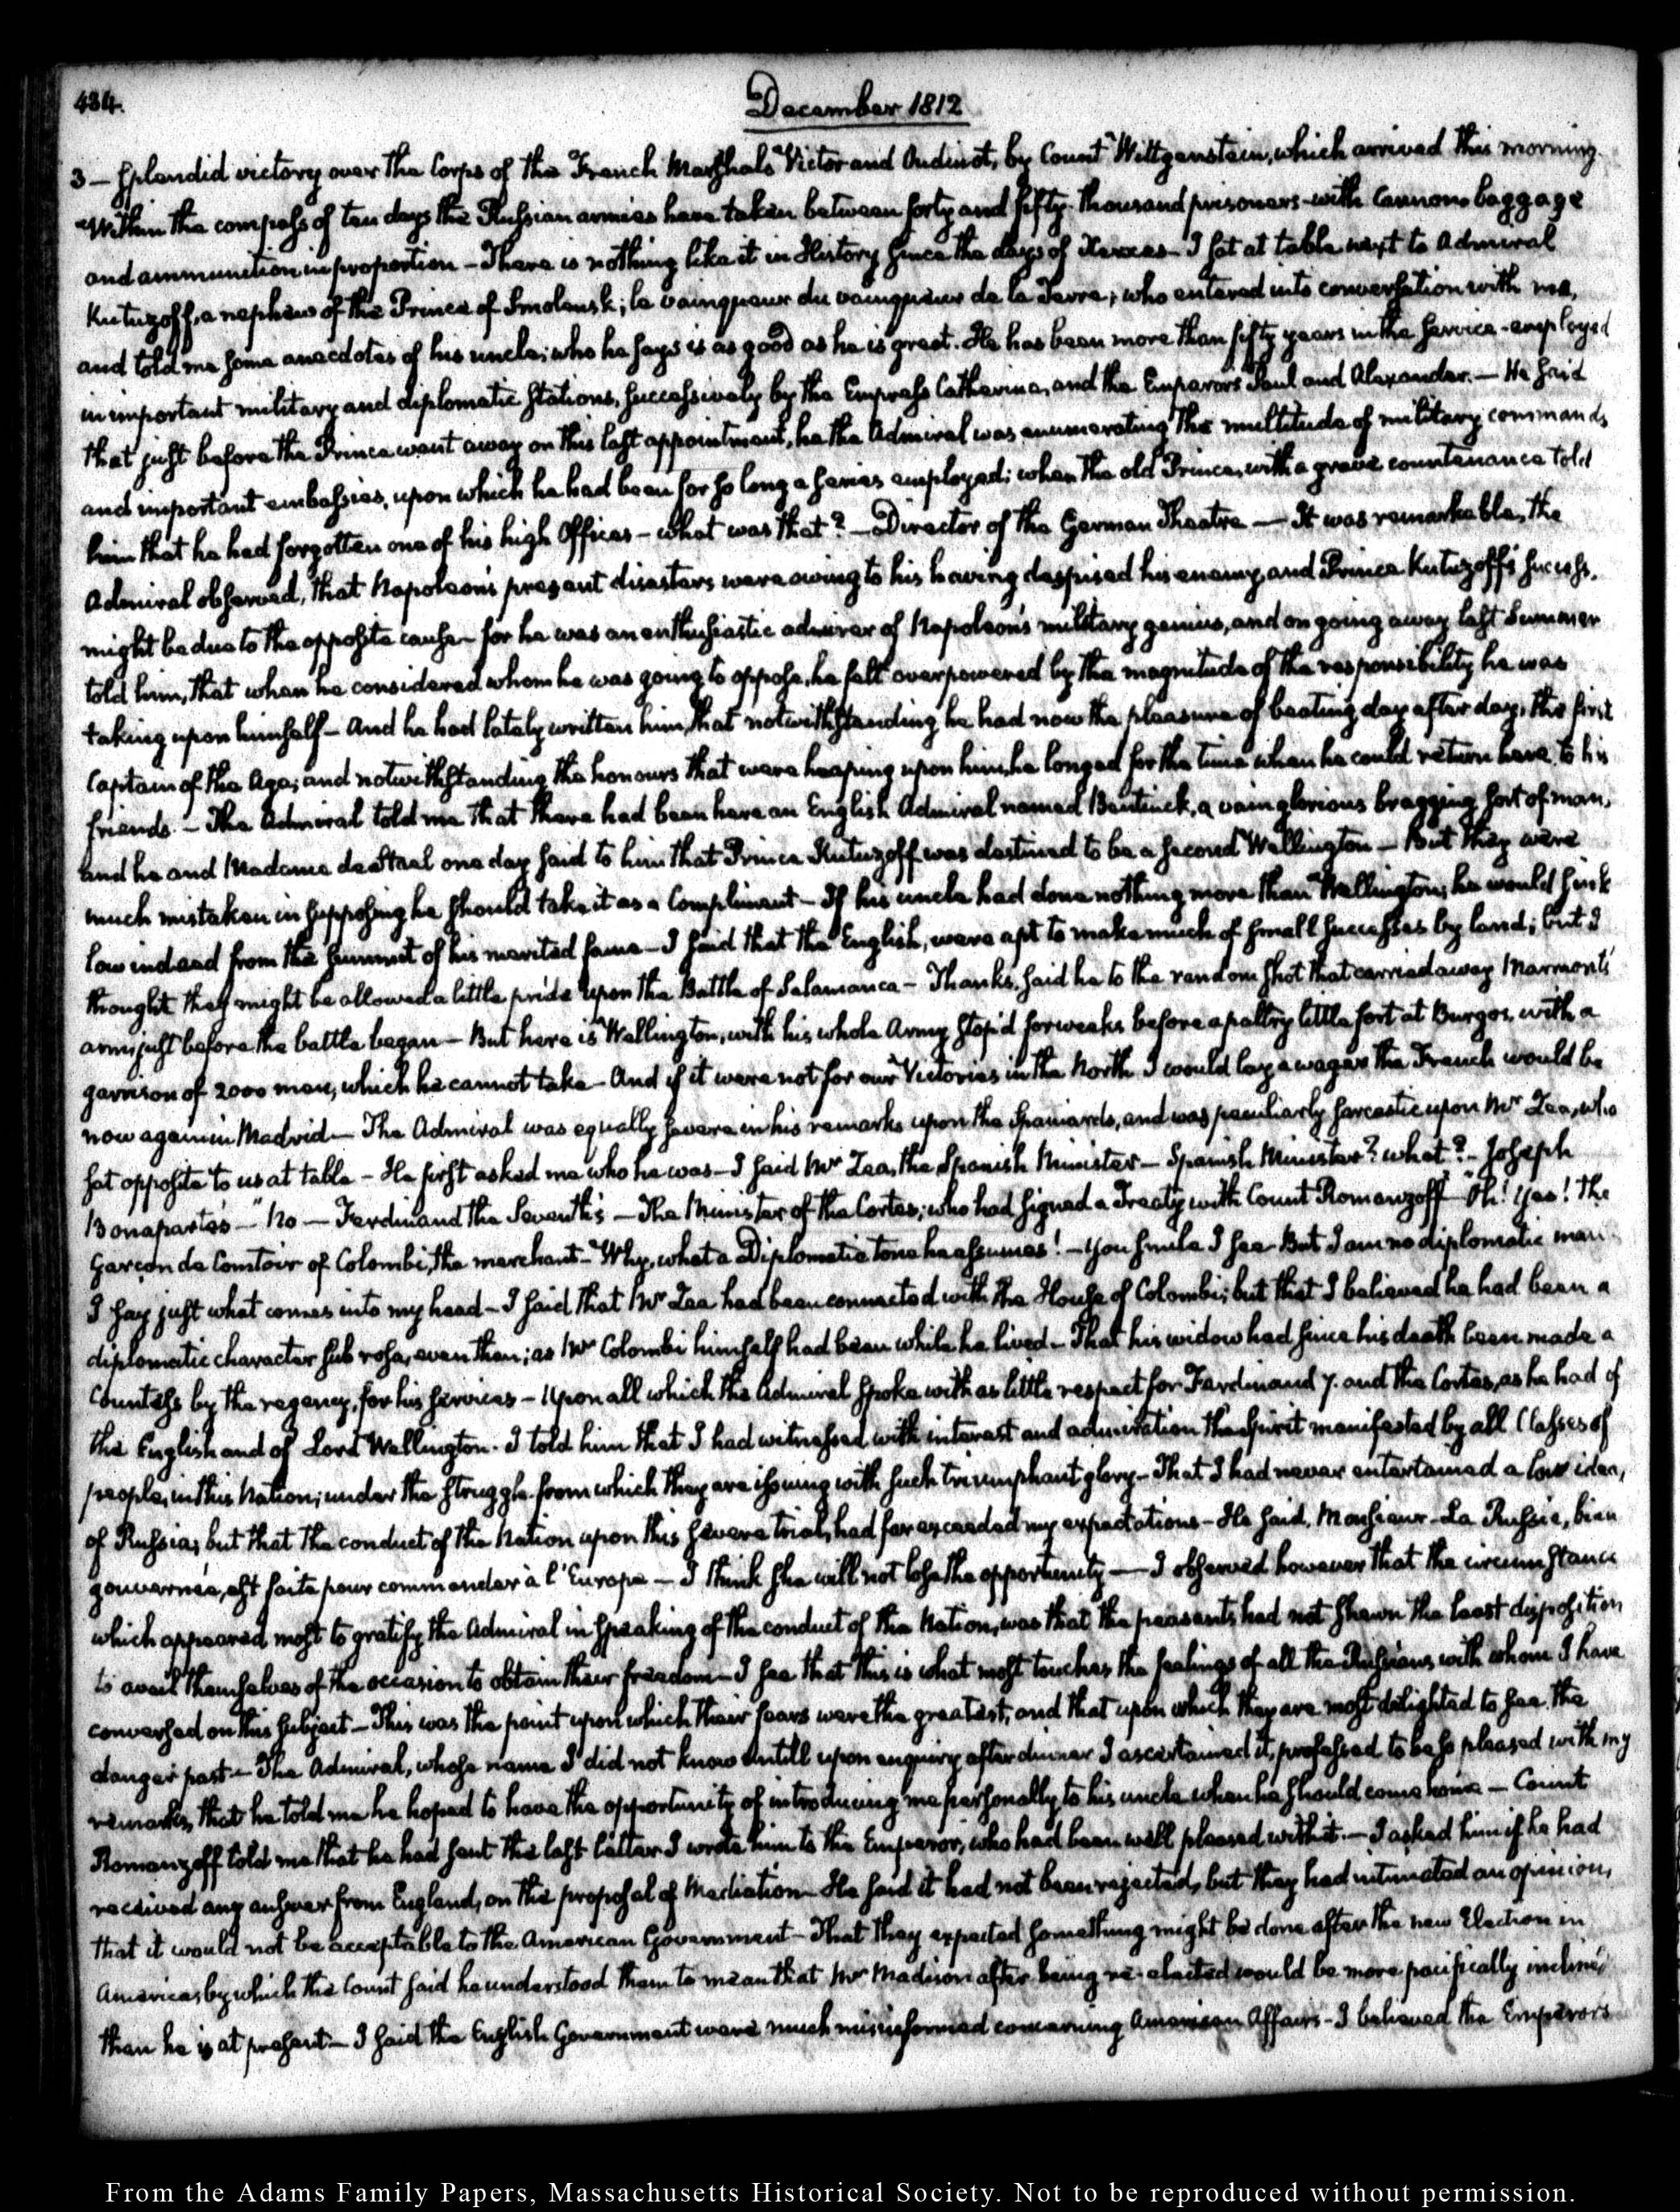 434.
December 1812
3 — Splendid victory over the Corps of the French Marshals Victor and Oudinot, by Count Wittgenstein, which arrived this morning.
Within the compass of ten days the Russian armies have taken between forty and fifty thousand prisoners with Cannon baggage
and ammunition in proportion — There is nothing like it in History since the days of Xerxes — I sat at table next to Admiral
Kutuzoff, a nephew of the Prince of Smolensk; le vainqueur du vainqueur de la Terre; who entered into conversation with me,
and told me some anecdotes of his uncle; who he says is as good as he is great. He has been more than fifty years in the service — employed
in important military and diplomatic stations, successively by the Empress Catharina, and the Emperors Paul and Alexander. — He said
that just before the Prince went away on this last appointment, he the Admiral was enumerating the multitude of military commands,
and important embassies, upon which he had been for so long a series employed; when the old Prince, with a grave countenance told
him that he had forgotten one of his high Offices — what was that? — Director of the German Theatre — It was remarkable, the
Admiral observed, that Napoleon's present disasters were owing to his having despised his enemy, and Prince Kutuzoff's success,
might be due to the opposite cause — for he was an enthusiastic admirer of Napoleon's military genius, and on going away last Summer
told him, that when he considered whom he was going to oppose, he felt overpowered by the magnitude of the responsibility he was
taking upon himself — And he had lately written him, that notwithstanding he had now the pleasure of beating day after day, the first
Captain of the Age; and notwithstanding the honours that were heaping upon him, he longed for the time when he could return here, to his
friends. — The Admiral told me that there had been here an English Admiral named Bentinck, a vain glorious bragging sort of man,
and he and Madame de Stael one day said to him that Prince Kutuzoff was destined to be a second Wellington — But they were
much mistaken in supposing he should take it as a Compliment — If his uncle had done nothing more than Wellington, he would sink
low indeed from the summit of his merited fame — I said that the English, were apt to make much of small successes by land; but I
thought they might be allowed a little pride upon the Battle of Salamanca — Thanks, said he to the random shot that carried away Marmont's
arm just before the battle began — But here is Wellington, with his whole Army stop'd for weeks before a paltry little fort at Burgos, with a
garrison of 2000 men, which he cannot take — And if it were not for our Victories in the North I would lay a wager the French would be
now again in Madrid — The Admiral was equally severe in his remarks upon the Spaniards, and was peculiarly sarcastic upon Mr Zea, who
sat opposite to us at table — He first asked me who he was — I said Mr Zea, the Spanish Minister — Spanish Minister? what? — Joseph
Bonaparte's — "No — Ferdinand the Seventh's — The Minister of the Cortes; who had signed a Treaty with Count Romanzoff — "Oh! Yes! the
Garçon de Comtoir of Colombi, the merchant — Why, what a Diplomatic tone he assumes! — You smile I see — But I am no diplomatic man
I say just what comes into my head — I said that Mr Zea had been connected with the House of Colombi; but that I believed he had been a
diplomatic character sub rosa, even then; as Mr Colombi himself had been while he lived — That his widow had since his death been made a
Countess by the regency, for his services — Upon all which the Admiral spoke with as little respect for Ferdinand 7. and the Cortes, as he had of
the English and of Lord Wellington. I told him that I had witnessed with interest and admiration the spirit manifested by all Classes of
people, in this Nation; under the struggle from which they are issuing with such triumphant glory — That I had never entertained a low idea,
of Russia; but that the conduct of the Nation upon this severe trial, had far exceeded my expectations — He said, Monsieur — La Russie, bien
gouvernée, est faite pour commander à l'Europe — I think she will not lose the opportunity — I observed however that the circumstance
which appeared most to gratify the Admiral in speaking of the conduct of the Nation, was that the peasants had not shewn the least disposition
to avail themselves of the occasion to obtain their freedom — I see that this is what most touches the feelings of all the Russians with whom I have
conversed on this subject — This was the point upon which their fears were the greatest; and that upon which they are most delighted to see the
danger past — The Admiral, whose name I did not know untill upon enquiry after dinner I ascertained it, professed to be so pleased with my
remarks, that he told me he hoped to have the opportunity of introducing me personally to his uncle when he should come home — Count
Romanzoff told me that he had sent the last letter I wrote him to the Emperor, who had been well pleased with it. — I asked him if he had
received any answer from England, on the proposal of Mediation — He said it had not been rejected, but they had intimated an opinion,
that it would not be acceptable to the American Government — That they expected something might be done after the new Election in
America; by which the Count said he understood them to mean that Mr Madison after being re-elected would be more pacifically inclined
than he is at present — I said the English Government were much misinformed concerning American Affairs — I believed the Emperor's
From the Adams Family Papers, Massachusetts Historical Society. Not to be reproduced without permission.